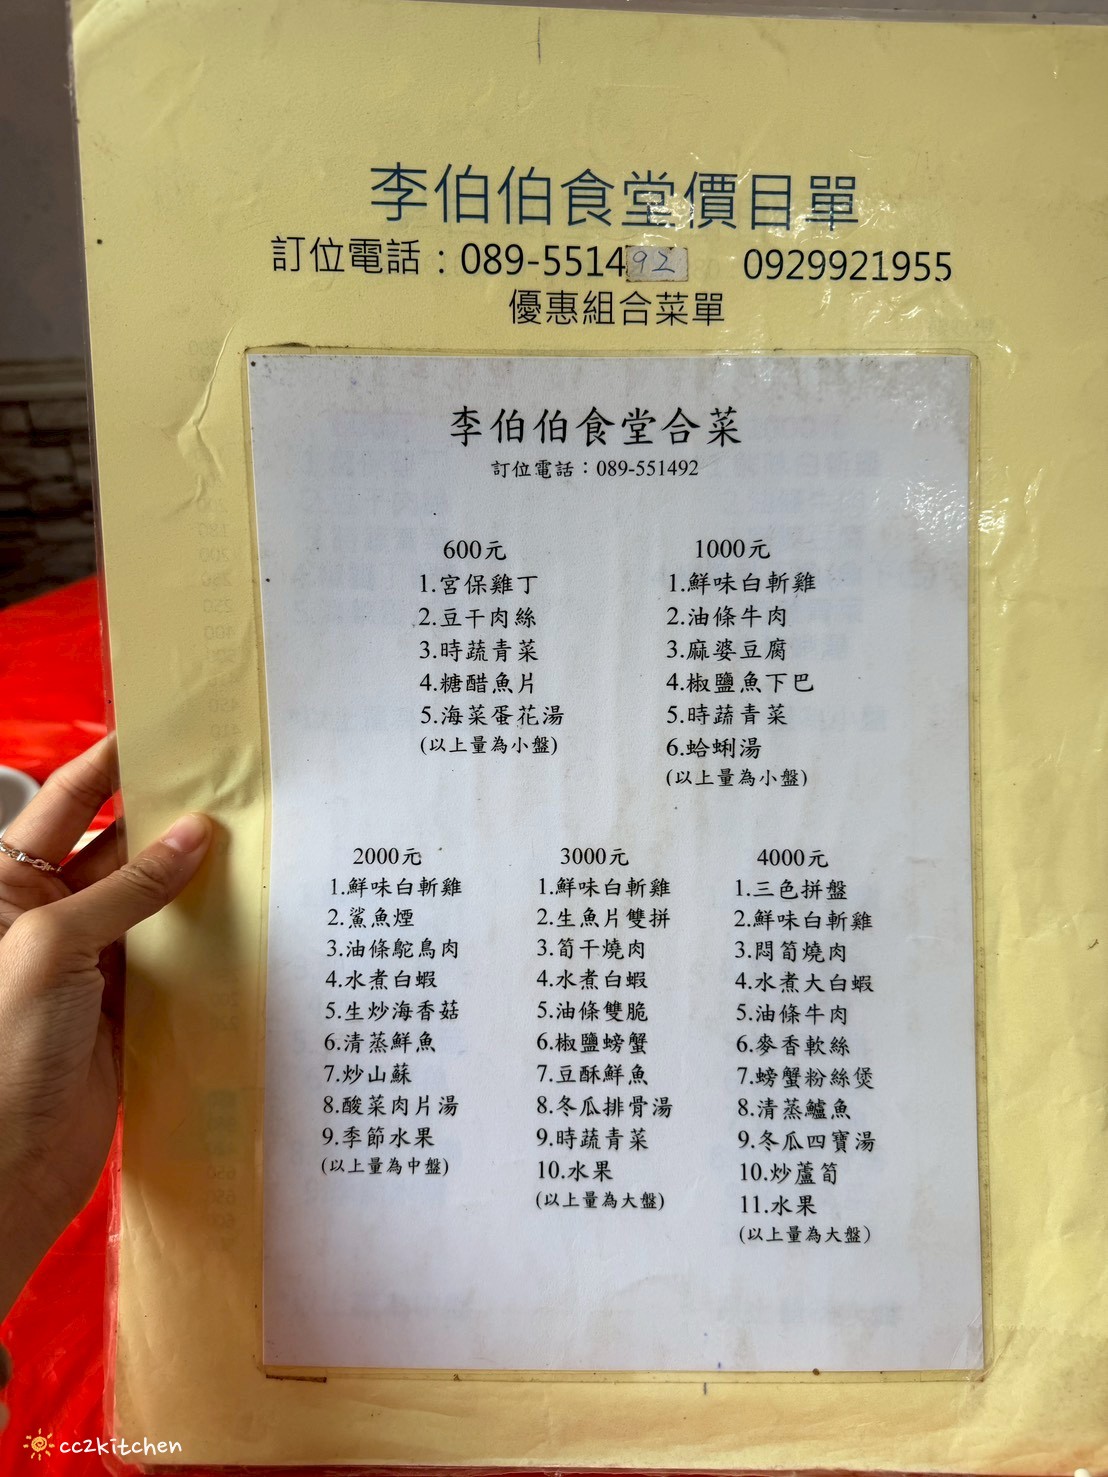 李伯伯食堂價目單
訂位電話：089-551492 0929921955
優惠組合菜單
李伯伯食堂合菜
訂位電話：089-551492
600元
1.宮保雞丁
2.豆干肉絲
3.時蔬青菜
4.糖醋魚片
5.海菜蛋花湯
(以上量為小盤)
1000元
1.鮮味白斬雞
2.油條牛肉
3.麻婆豆腐
4.椒鹽魚下巴
5.時蔬青菜
6.蛤蜊湯
(以上量為小盤)
2000元
1.鮮味白斬雞
2.鯊魚煙
3.油條鴕鳥肉
4.水煮白蝦
5.生炒海香菇
6.清蒸鮮魚
7.炒山蘇
8.酸菜肉片湯
9.季節水果
(以上量為中盤)
3000元
1.鮮味白斬雞
2.生魚片雙拼
3.筍干燒肉
4.水煮白蝦
5.油條雙脆
6.椒鹽螃蟹
7.豆酥鮮魚
8.冬瓜排骨湯
9.時蔬青菜
10.水果
(以上量為大盤)
4000元
1.三色拼盤
2.鮮味白斬雞
3.悶筍燒肉
4.水煮大白蝦
5.油條牛肉
6.麥香軟絲
7.螃蟹粉絲煲
8.清蒸鱸魚
9.冬瓜四寶湯
10.炒蘆筍
11.水果
(以上量為大盤)
cc2kitchen